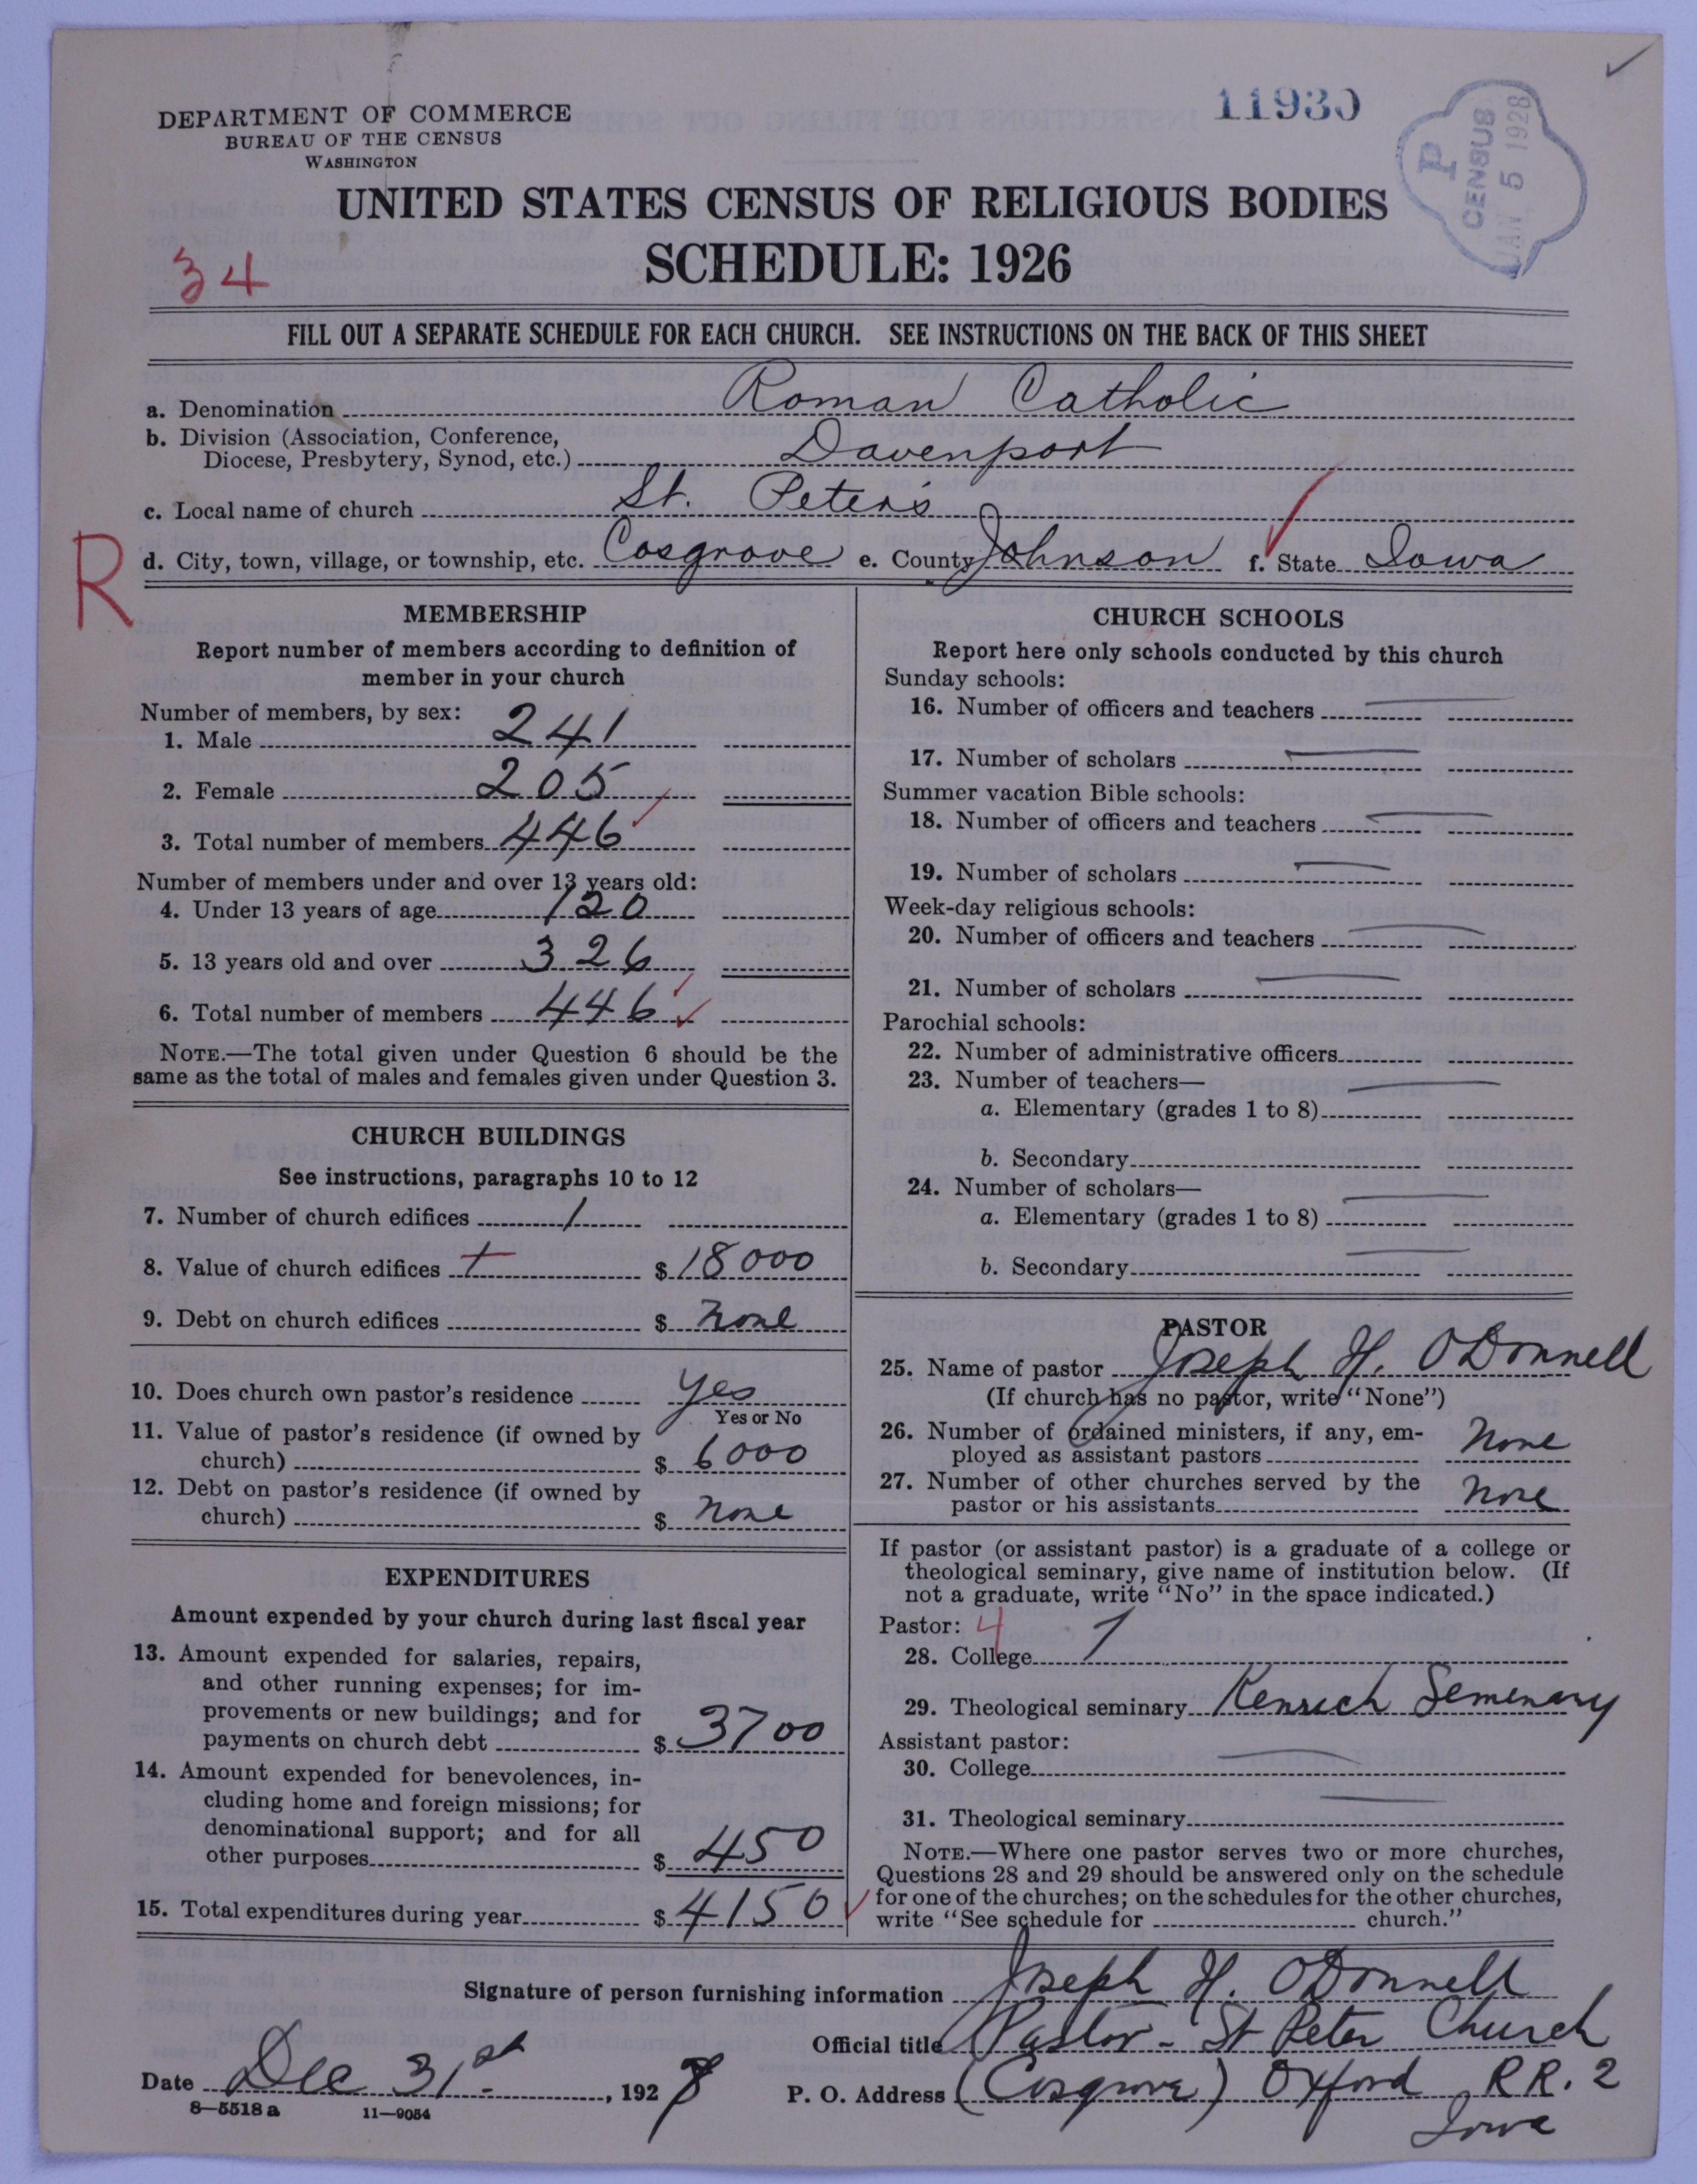 11930
P
CENSUS
JAN 5 1928
DEPARTMENT OF COMMERCE
BUREAU OF THE CENSUS
WASHINGTON
UNITED STATES CENSUS OF RELIGIOUS BODIES
SCHEDULE: 1926
34
FILL OUT A SEPARATE SCHEDULE FOR EACH CHURCH. SEE INSTRUCTIONS ON THE BACK OF THIS SHEET
a. Denomination Roman Catholic
b. Division (Association, Conference,
Diocese, Presbytery, Synod, etc.) Davenport
c. Local name of church St. Peter's
R
d. City, town, village, or township, etc. Cosgrove e. County Johnson f. State Iowa
MEMBERSHIP
Report number of members according to definition of
member in your church
Number of members, by sex:
1. Male 241
2. Female 205
3. Total number of members 446
Number of members under and over 13 years old:
4. Under 13 years of age 120
5. 13 years old and over 326
6. Total number of members 446
NOTE.—The total given under Question 6 should be the
same as the total of males and females given under Question 3.
CHURCH BUILDINGS
See instructions, paragraphs 10 to 12
7. Number of church edifices 1
8. Value of church edifices $ 18000
9. Debt on church edifices $ none
10. Does church own pastor's residence yes
Yes or No
11. Value of pastor's residence (if owned by
church) $ 6000
12. Debt on pastor's residence (if owned by
church) $ none
EXPENDITURES
Amount expended by your church during last fiscal year
13. Amount expended for salaries, repairs,
and other running expenses; for im-
provements or new buildings; and for
payments on church debt $ 3700
14. Amount expended for benevolences, in-
cluding home and foreign missions; for
denominational support; and for all
other purposes $ 450
15. Total expenditures during year $ 4150
CHURCH SCHOOLS
Report here only schools conducted by this church
Sunday schools:
16. Number of officers and teachers
17. Number of scholars
Summer vacation Bible schools:
18. Number of officers and teachers
19. Number of scholars
Week-day religious schools:
20. Number of officers and teachers
21. Number of scholars
Parochial schools:
22. Number of administrative officers
23. Number of teachers—
a. Elementary (grades 1 to 8)
b. Secondary
24. Number of scholars—
a. Elementary (grades 1 to 8)
b. Secondary
PASTOR
25. Name of pastor Joseph H. O'Donnell
(If church has no pastor, write "None")
26. Number of ordained ministers, if any, em-
ployed as assistant pastors None
27. Number of other churches served by the
pastor or his assistants None
If pastor (or assistant pastor) is a graduate of a college or
theological seminary, give name of institution below. (If
not a graduate, write "No" in the space indicated.)
Pastor: 4
28. College
29. Theological seminary Kenrick Semenary
Assistant pastor:
30. College
31. Theological seminary
NOTE.—Where one pastor serves two or more churches,
Questions 28 and 29 should be answered only on the schedule
for one of the churches; on the schedules for the other churches,
write "See schedule for church."
Signature of person furnishing information Joseph H. O'Donnell
Official title Pastor - St Peter Church
Date Dec 31st, 192
P. O. Address (Cosgrove) Oxford RR. 2
Iowa
8—5518 a 11—9054